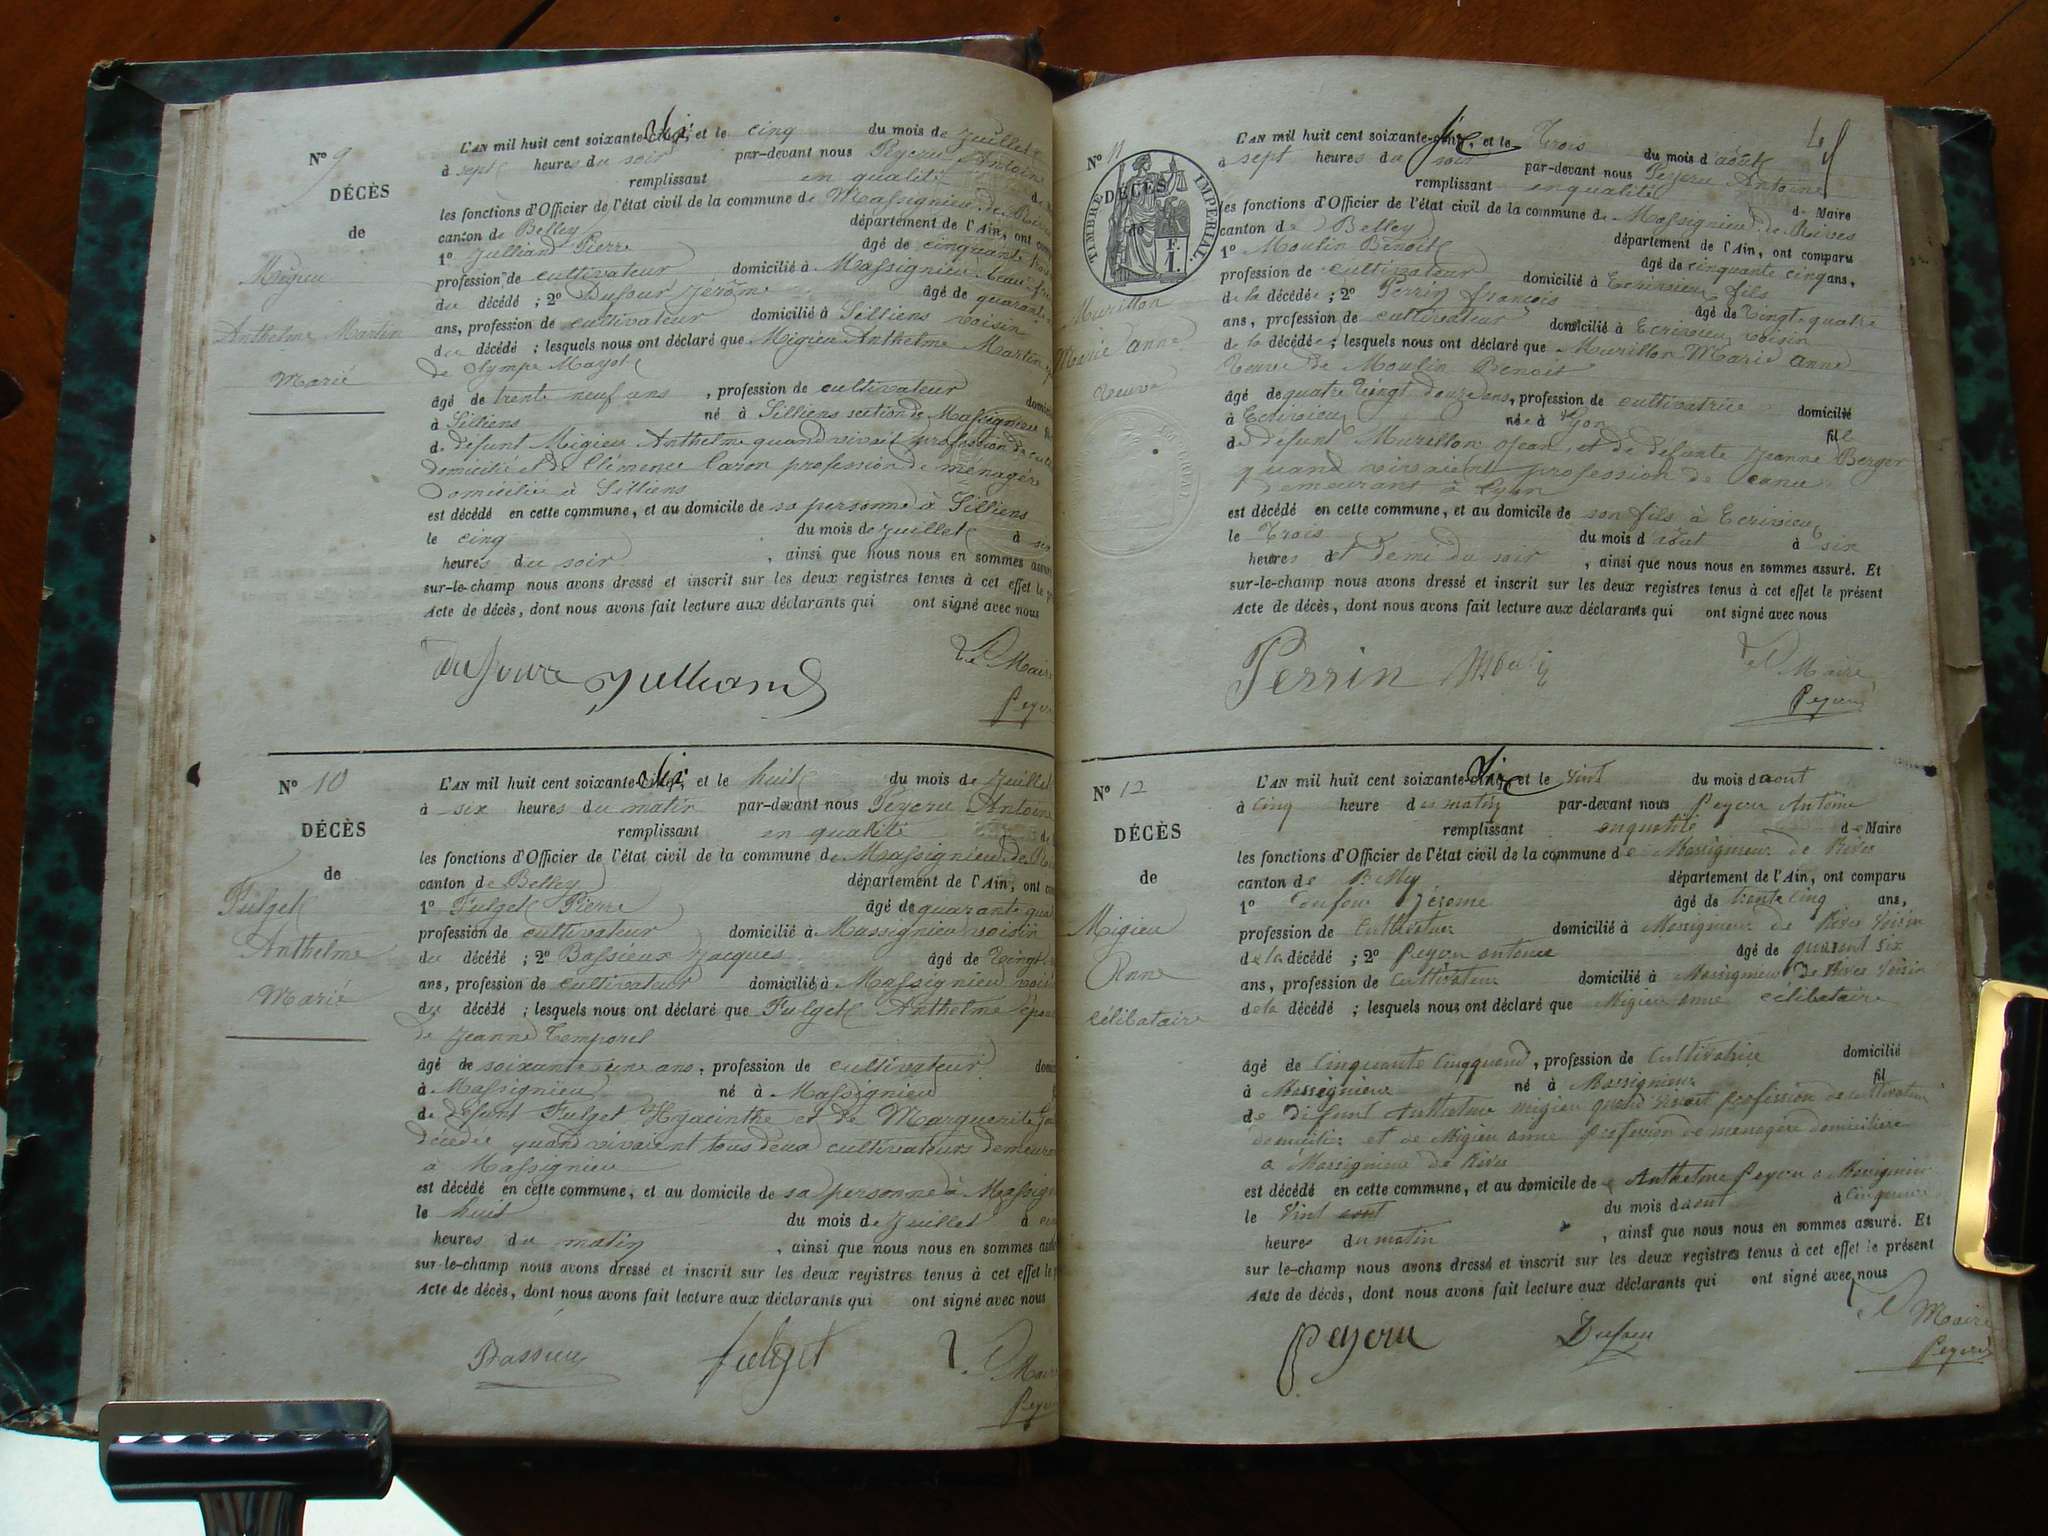 N° 9
DÉCÈS
de
Migieu
Anthelme Martin
Marié
L'AN mil huit cent soixante-six, et le cinq du mois de Juillet
à sept heures du soir par-devant nous Peyeru Antoine
remplissant en qualité de
les fonctions d'Officier de l'état civil de la commune de Massignieu de Rives
canton de Belley département de l'Ain, ont comp
1° Julliand Pierre âgé de cinquante trois
profession de cultivateur domicilié à Massignieu beau frè
du décédé ; 2° Dufour Jérôme âgé de quarante
ans, profession de cultivateur domicilié à Silliens voisin
du décédé ; lesquels nous ont déclaré que Migieu Anthelme Martin
de Sympe Mayot
âgé de trente neuf ans , profession de cultivateur domi
à Silliens né à Silliens section de Massignieu
de défunt Migieu Anthelme quand vivait profession de cul
domicilié et de Clémence Caron profession de ménagère
domiciliée à Silliens
est décédé en cette commune, et au domicile de sa personne à Silliens
le cinq du mois de Juillet à six
heures du soir , ainsi que nous nous en sommes assuré
sur-le-champ nous avons dressé et inscrit sur les deux registres tenus à cet effet le pr
Acte de décès, dont nous avons fait lecture aux déclarants qui ont signé avec nous
dufour Julliand
Le Maire
Peyeru
N° 10
DÉCÈS
de
Fulget
Anthelme
Marié
L'AN mil huit cent soixante-six, et le huit du mois de Juillet
à six heures du matin par-devant nous Peyeru Antoine
remplissant en qualité de
les fonctions d'Officier de l'état civil de la commune de Massignieu de Ri
canton de Belley département de l'Ain, ont com
1° Fulget Pierre âgé de quarante quat
profession de cultivateur domicilié à Massignieu voisin
du décédé ; 2° Bassieux Jacques âgé de vingt
ans, profession de cultivateur domicilié à Massignieu voisi
du décédé ; lesquels nous ont déclaré que Fulget Anthelme épou
de Jeanne Temporel
âgé de soixante une ans, profession de cultivateur domi
à Massignieu né à Massignieu
de défunt Fulget Hyacinthe et de Marguerite
décédée quand vivaient tous deux cultivateurs demeur
à Massignieu
est décédé en cette commune, et au domicile de sa personne à Massign
le huit du mois de Juillet à cin
heures du matin , ainsi que nous nous en sommes assu
sur-le-champ nous avons dressé et inscrit sur les deux registres tenus à cet effet le p
Acte de décès, dont nous avons fait lecture aux déclarants qui ont signé avec nous
Bassieux fulget
Le Maire
Peyeru
N° 11
TIMBRE IMPÉRIAL
DÉCÈS
de
F.
1.
Murillon
Marie anne
Veuve
L'AN mil huit cent soixante-six, et le Trois du mois d'août
à sept heures du soir par-devant nous Peyeru Antoine
remplissant en qualité de Maire
les fonctions d'Officier de l'état civil de la commune de Massignieu de Rives
canton de Belley département de l'Ain, ont comparu
1° Moulin Benoit âgé de cinquante cinq ans,
profession de cultivateur domicilié à Ecrivieu fils
de la décédée ; 2° Perrin françois âgé de vingt quatre
ans, profession de cultivateur domicilié à Ecrivieu voisin
de la décédée ; lesquels nous ont déclaré que Murillon Marie Anne
Veuve de Moulin Benoit
âgé de quatre vingt douze ans, profession de cultivatrice domicilié
à Ecrivieu née à Lyon fille
de défunt Murillon Jean, et de défunte Jeanne Berger
quand vivaient profession de Canu
demeurant à Lyon
est décédé en cette commune, et au domicile de son fils à Ecrivieu
le Trois du mois d'août à six
heures et demi du soir , ainsi que nous nous en sommes assuré. Et
sur-le-champ nous avons dressé et inscrit sur les deux registres tenus à cet effet le présent
Acte de décès, dont nous avons fait lecture aux déclarants qui ont signé avec nous
Perrin
Le Maire
Peyeru
N° 12
DÉCÈS
de
Migieu
Anne
célibataire
L'AN mil huit cent soixante-six, et le vint du mois d'aout
à cinq heure du matin par-devant nous Peyeru Antoine
remplissant enqualité de Maire
les fonctions d'Officier de l'état civil de la commune de Massignieux de Rives
canton de Belley département de l'Ain, ont comparu
1° Dufour Jérome âgé de trente cinq ans,
profession de Cultivateur domicilié à Massignieux de Rives Voisin
de la décédé ; 2° Peyeru antoine âgé de quarent six
ans, profession de Cultivateur domicilié à Massignieux de Rives Voisin
de la décédé ; lesquels nous ont déclaré que Migieu anne célibataire
âgé de Cinquante Cinq , profession de Cultivatrice domicilié
à Massignieux né à Massignieux fil
de Défunt Anthelme Migieu quand vivait profession de cultivateur
domicilié et de Migieu anne profession de menagère domicilière
a Massignieux de Rives
est décédé en cette commune, et au domicile de Anthelme Peyeru a Massignieu
le Vint du mois d'aout à
heures du matin , ainsi que nous nous en sommes assuré. Et
sur le-champ nous avons dressé et inscrit sur les deux registres tenus à cet effet le présent
Acte de décès, dont nous avons fait lecture aux déclarants qui ont signé avec nous
Peyeru Dufour
Le Maire
Peyeru